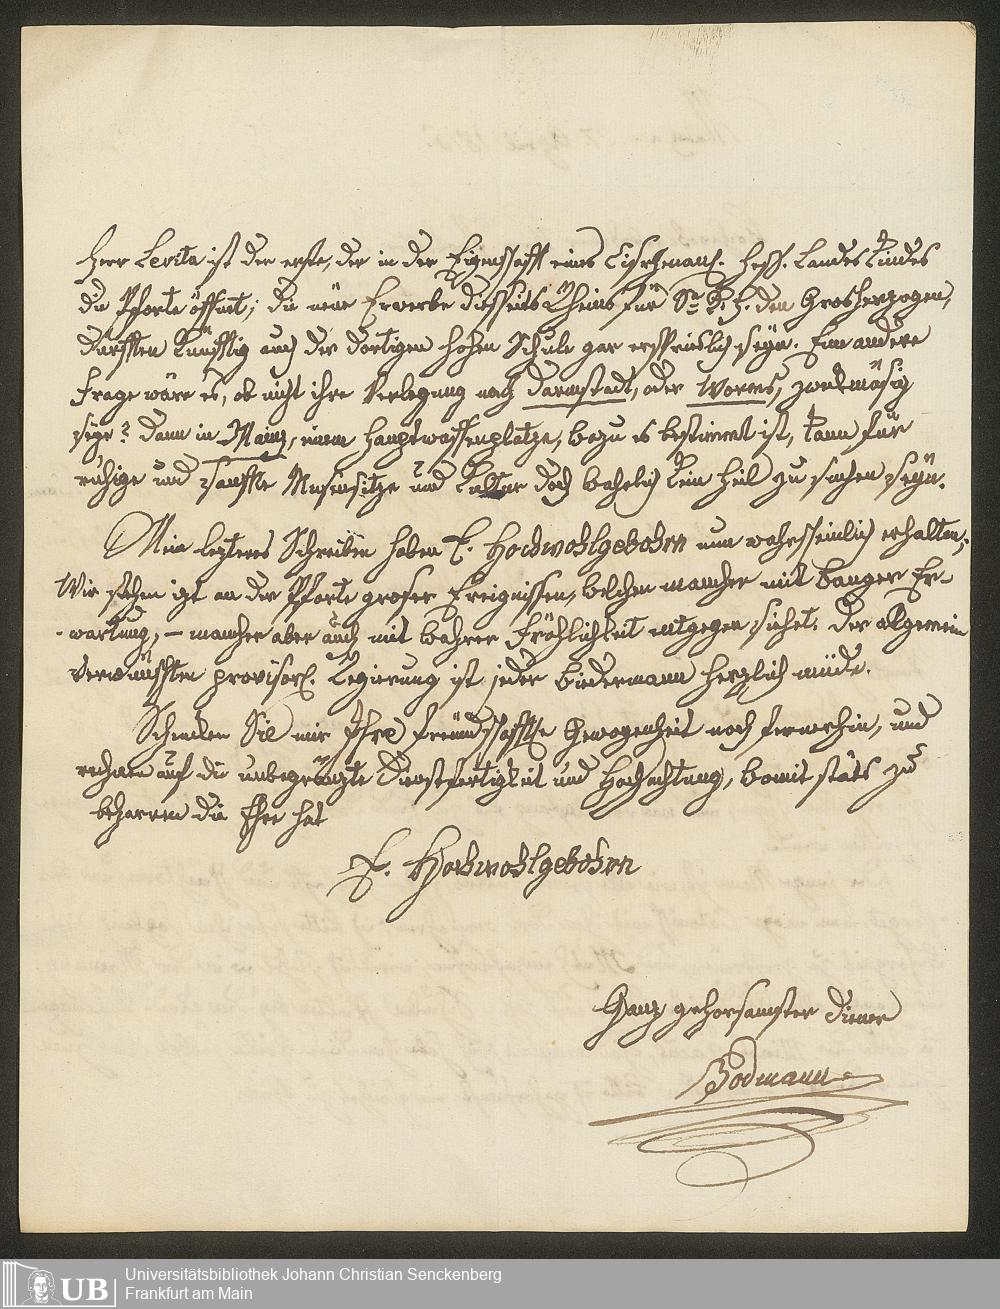 Herr Levita ist der erste, der in der Eigenschafft eines Cisrhenan. Hess. Landes Kindes
die Pforte öffnet; die neüe Erwerbe diesseits Rheins für Sr. K. H. den Grosherzogen,
dürfften künfftig auch der dortigen hohen Schule gar ersprieslich seÿn. Eine andere
Frage wäre es, ob nicht ihre Verlegung nach Darmstadt, oder Worms, zwekmäsig
seÿe? dann in Mainz, einem Hauptwaffenplatze, wozu es bestimmt ist, kann für
ruhige und sanffte Musensitze und Kultur doch wahrlich kein Heil zu suchen seÿn.
Mein lezteres Schreiben haben E. Hochwohlgebohrn nun wahrscheinlich erhalten;
Wir stehen izt an der Pforte groser Ereignissen, welchen mancher mit banger Er-
-wartung, – mancher aber auch mit wahrer Fröhlichkeit entgegen siehet. Der allgemein
verwünschten provisor. Regierung ist jeder Biedermann herzlich müde.
Schenken Sie mir Ihre freündschafftliche Gewogenheit noch fernerhin, und
rechnen auf die unbegränzte Dienstfertigkeit und Hochachtung, womit stäts zu
beharren die Ehre hat
E. Hochwohlgebohrn
Ganz gehorsamster Diener
Bodmann
UB
Universitätsbibliothek Johann Christian Senckenberg
Frankfurt am Main